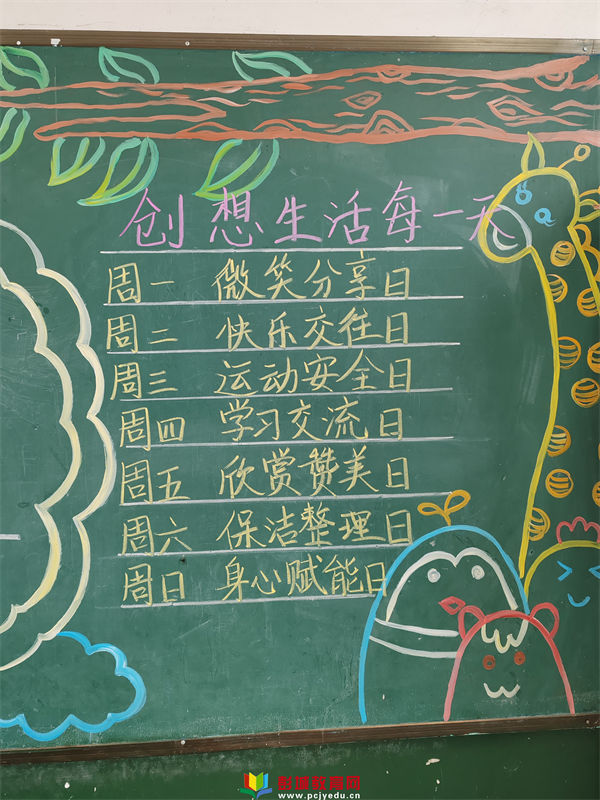 创想生活每一天
周一 微笑分享日
周二 快乐交往日
周三 运动安全日
周四 学习交流日
周五 欣赏赞美日
周六 保洁整理日
周日 身心赋能日
彭城教育网
www.pcjyedu.cn